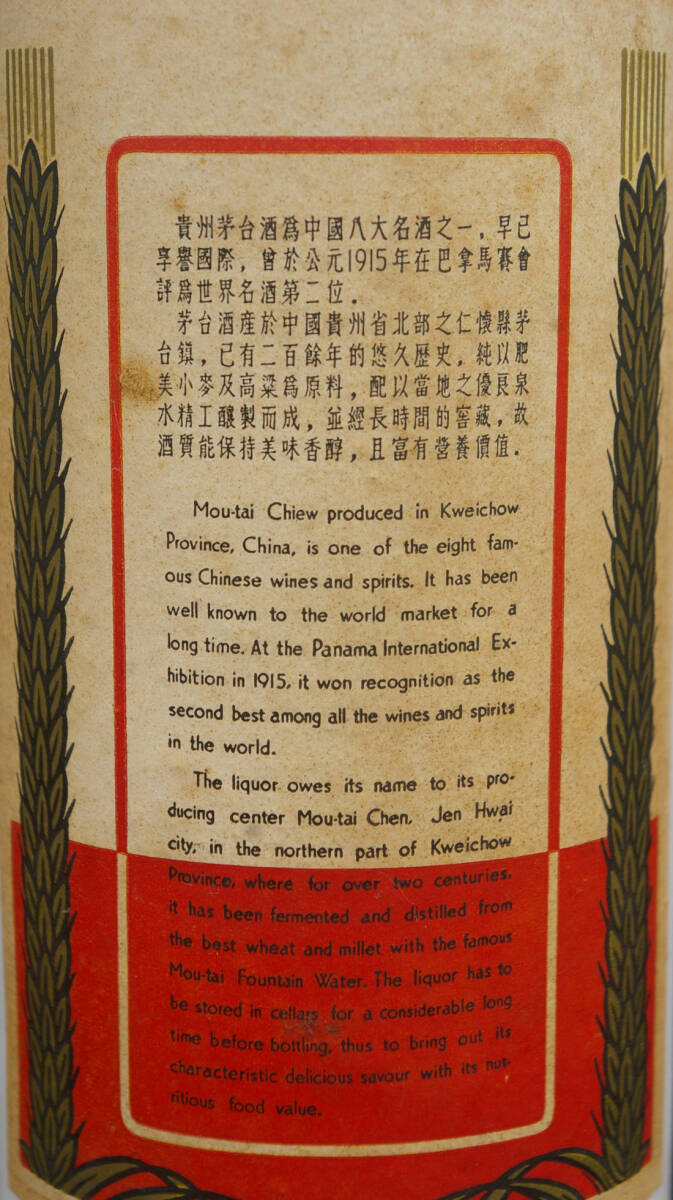 貴州茅台酒爲中國八大名酒之一，早已
享譽國際，曾於公元1915年在巴拿馬賽會
評爲世界名酒第二位．
茅台酒産於中國貴州省北部之仁懷縣茅
台鎮，已有二百餘年的悠久歷史，純以肥
美小麥及高粱爲原料，配以當地之優良泉
水精工釀製而成，並經長時間的窖藏，故
酒質能保持美味香醇，且富有營養價值．
Mou-tai Chiew produced in Kweichow
Province, China, is one of the eight fam-
ous Chinese wines and spirits. It has been
well known to the world market for a
long time. At the Panama International Ex-
hibition in 1915, it won recognition as the
second best among all the wines and spirits
in the world.
The liquor owes its name to its pro-
ducing center Mou-tai Chen, Jen Hwai
city, in the northern part of Kweichow
Province, where for over two centuries,
it has been fermented and distilled from
the best wheat and millet with the famous
Mou-tai Fountain Water. The liquor has to
be stored in cellars for a considerable long
time before bottling, thus to bring out its
characteristic delicious savour with its nut-
ritious food value.